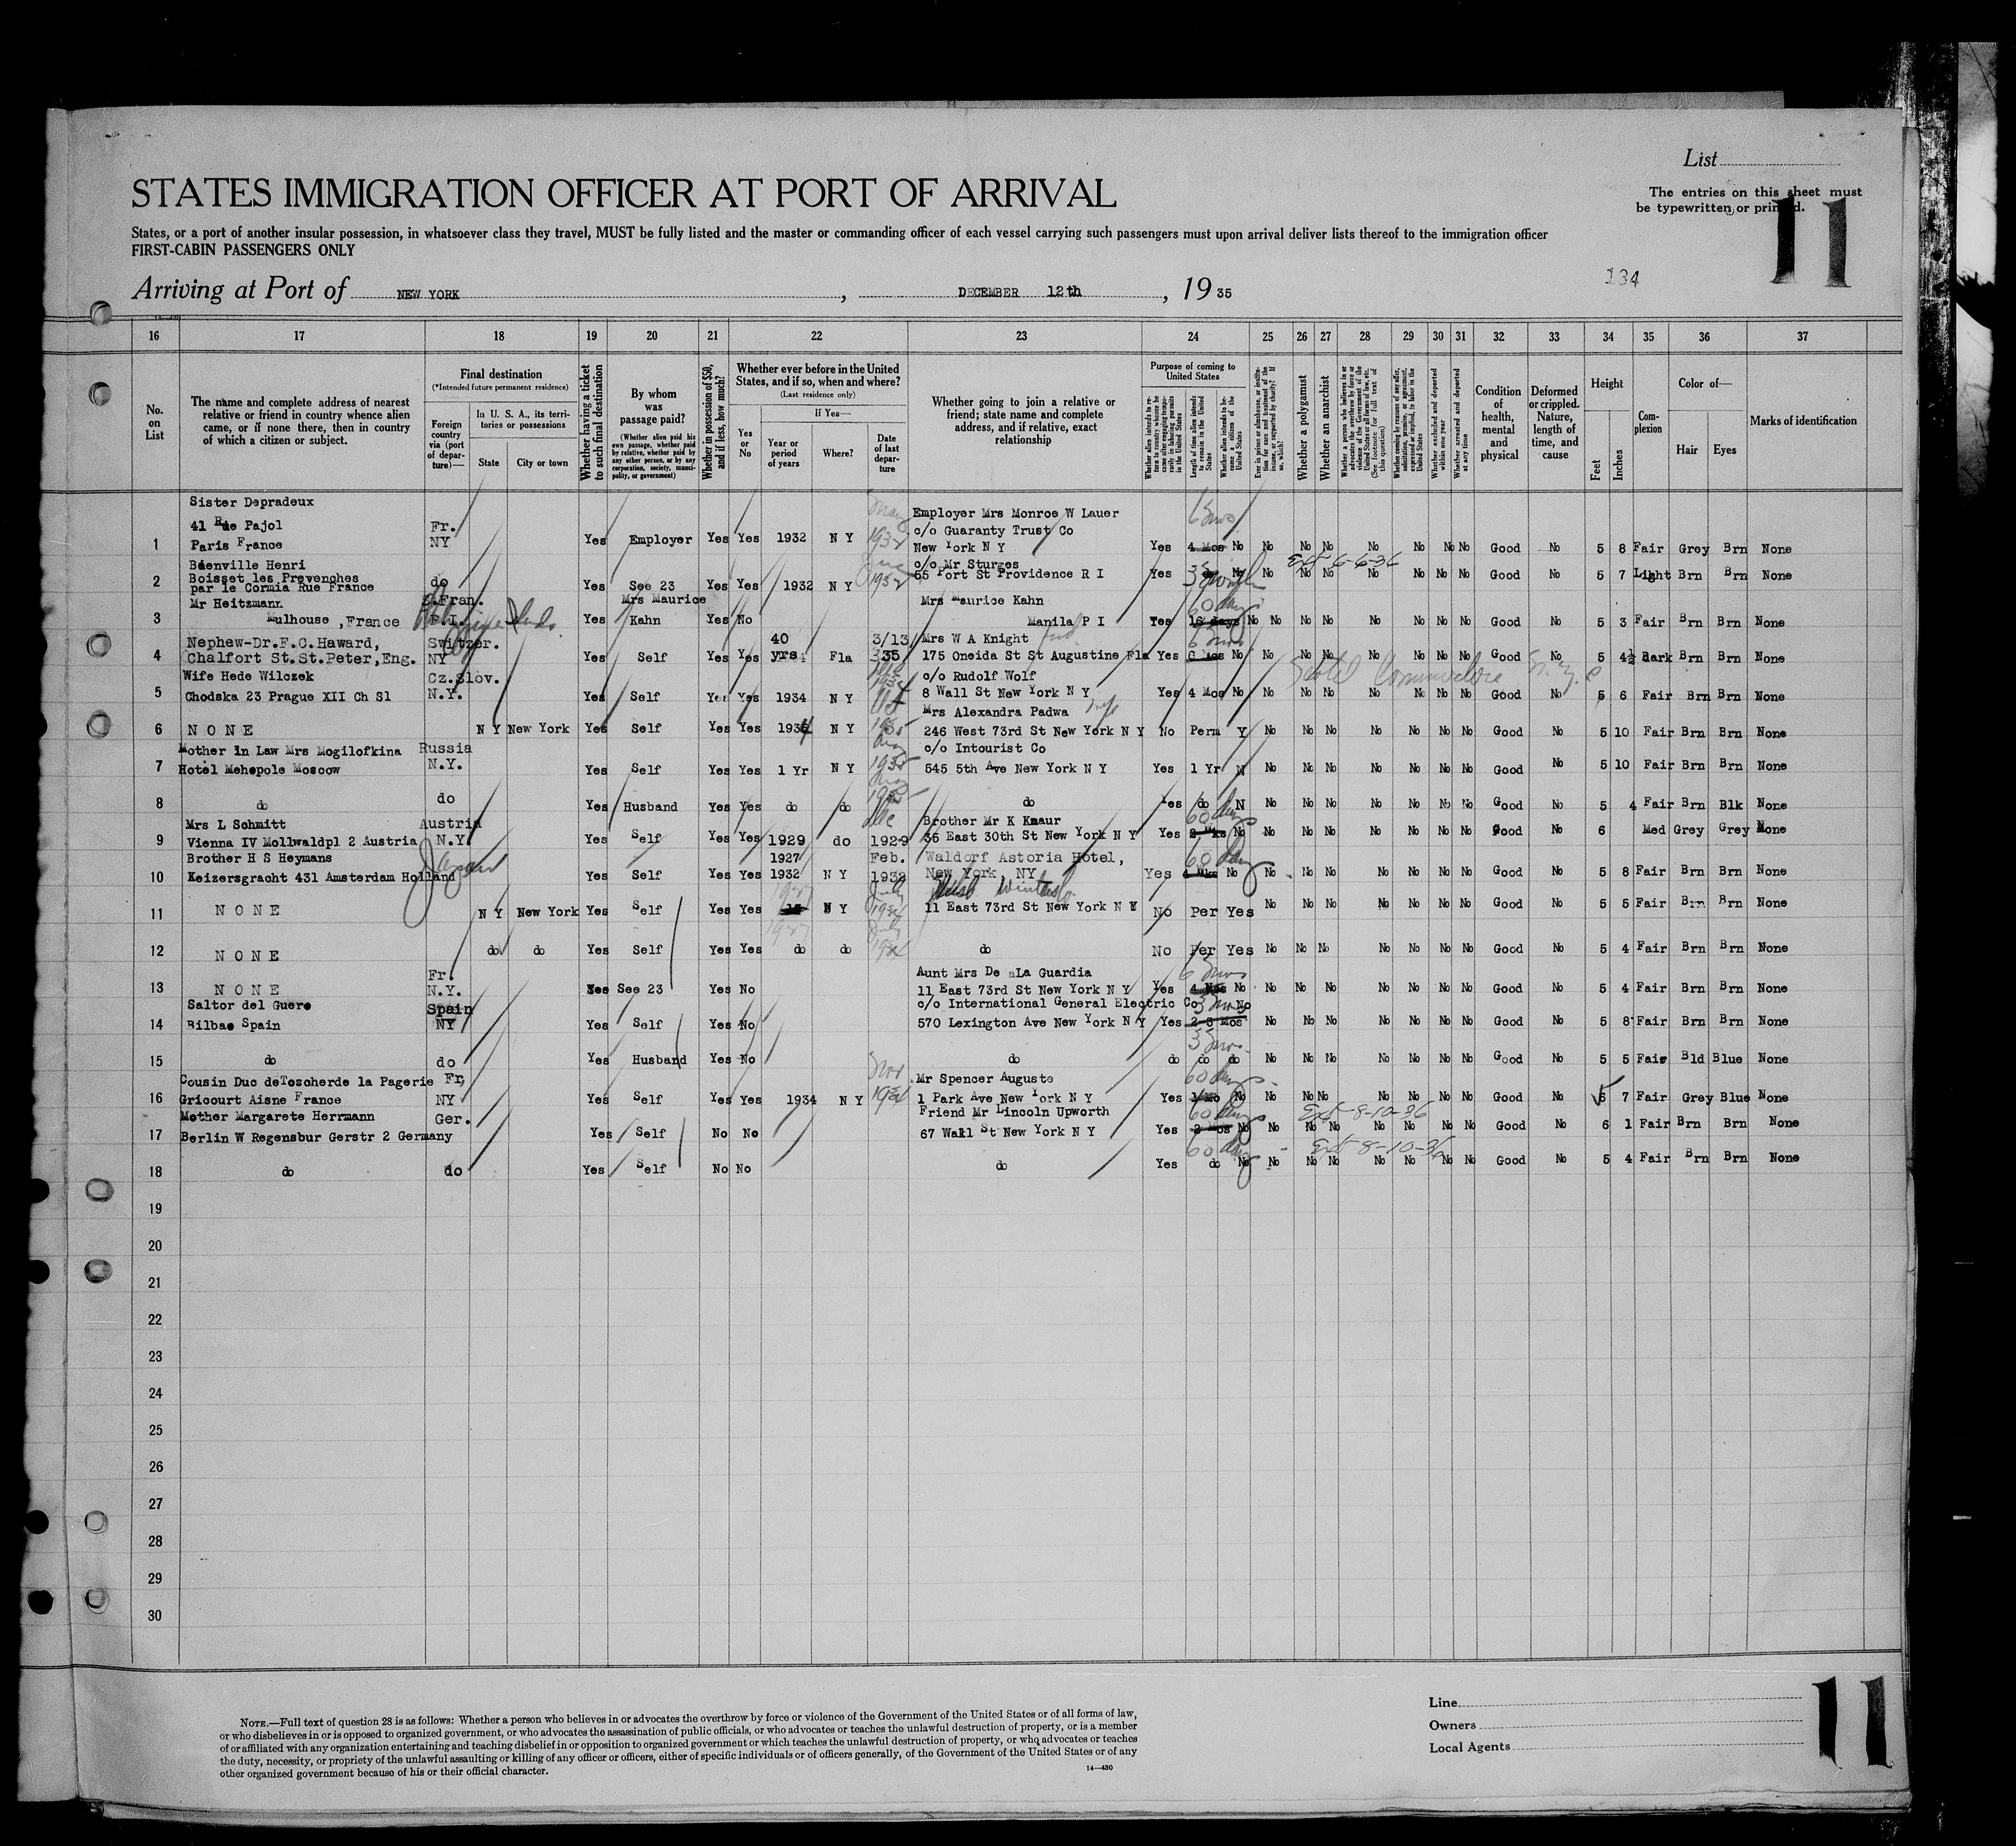 List
STATES IMMIGRATION OFFICER AT PORT OF ARRIVAL
The entries on this sheet must
be typewritten or printed.
11
States, or a port of another insular possession, in whatsoever class they travel, MUST be fully listed and the master or commanding officer of each vessel carrying such passengers must upon arrival deliver lists thereof to the immigration officer
FIRST-CABIN PASSENGERS ONLY
Arriving at Port of NEW YORK, DECEMBER 12th, 1935
134
16 17 18 19 20 21 22 23 24 25 26 27 28 29 30 31 32 33 34 35 36 37
No. on List
The name and complete address of nearest relative or friend in country whence alien came, or if none there, then in country of which a citizen or subject.
Final destination
(*Intended future permanent residence)
Foreign country via (port of departure)—
In U. S. A., its territories or possessions
State
City or town
Whether having a ticket to such final destination
By whom was passage paid?
(Whether alien paid his own passage, whether paid by relative, whether paid by any other person, or by any corporation, society, municipality, or government)
Whether in possession of $50, and if less, how much?
Whether ever before in the United States, and if so, when and where?
(Last residence only)
Yes or No
If Yes—
Year or period of years
Where?
Date of last departure
Whether going to join a relative or friend; state name and complete address, and if relative, exact relationship
Purpose of coming to United States
Whether alien intends to return to country whence he came after engaging temporarily in laboring pursuits in the United States
Length of time alien intends to remain in the United States
Whether alien intends to become a citizen of the United States
Ever in prison or almshouse, or institution for care and treatment of the insane, or supported by charity? If so, which?
Whether a polygamist
Whether an anarchist
Whether a person who believes in or advocates the overthrow by force or violence of the Government of the United States or all forms of law, etc. (See footnote for full text of this question)
Whether coming by reasons of any offer, solicitation, promise, or agreement, expressed or implied, to labor in the United States
Whether excluded and deported within one year
Whether arrested and deported at any time
Condition of health, mental and physical
Deformed or crippled. Nature, length of time, and cause
Height
Feet
Inches
Complexion
Color of—
Hair
Eyes
Marks of identification
Sister Depradeux
41 Rde Pajol Fr. Employer Mrs Monroe W Lauer 6 mos
c/o Guaranty Trust Co
1 Paris France NY Yes Employer Yes Yes 1932 N Y 1932 New York N Y Yes 4 Mos No No No No No No No No Good No 5 8 Fair Grey Brn None
Bienville Henri c/o Mr Sturges Ext 6-6-36
2 Boisset les Prevenches do Yes See 23 Yes Yes 1932 N Y 1932 55 Port St Providence R I Yes do No No No No No No No No Good No 5 7 Light Brn Brn None
par le Cormia Rue France
Mr Heitzmann S.Fran. Mrs Maurice Mrs Maurice Kahn 60 days
3 Mulhouse ,France P.I. Yes Kahn Yes No Manila P I Yes 16 days No No No No No No No No Good No 5 3 Fair Brn Brn None
Nephew-Dr.F.C.Haward, Switzer. 40 3/13/ Mrs W A Knight 6 mos
4 Chalfort St.St.Peter,Eng. NY Yes Self Yes Yes yrs Fla 35 175 Oneida St St Augustine Fla Yes 6 Mos No No No No No No No No Good No 5 4½ Dark Brn Brn None
Wife Hede Wilczek Cz.Slov. c/o Rudolf Wolf Hotel Commodore N.Y.C
5 Chodska 23 Prague XII Ch Sl N.Y. Yes Self Yes Yes 1934 N Y 8 Wall St New York N Y Yes 4 Mos No No No No No No No No Good No 5 6 Fair Brn Brn None
Mrs Alexandra Padwa
6 N O N E N Y New York Yes Self Yes Yes 1934 N Y 1935 246 West 73rd St New York N Y No Perm Y No No No No No No No Good No 5 10 Fair Brn Brn None
Mother in Law Mrs Mogilofkina Russia c/o Intourist Co
7 Hotel Mehopole Moscow N.Y. Yes Self Yes Yes 1 Yr N Y 1935 545 5th Ave New York N Y Yes 1 Yr N No No No No No No No Good No 5 10 Fair Brn Brn None
8 do do Yes Husband Yes Yes do do 1935 do Yes do N No No No No No No No Good No 5 4 Fair Brn Blk None
Mrs L Schmitt Austria Dec Brother Mr K Knaur 60 days
9 Vienna IV Mollwaldpl 2 Austria N.Y. Yes Self Yes Yes 1929 do 1929 36 East 30th St New York N Y Yes 2 Wks No No No No No No No No Good No 6 Med Grey Grey None
Brother H S Heymans 1927 Feb. Waldorf Astoria Hotel, 60 days
10 Keizersgracht 431 Amsterdam Holland Yes Self Yes Yes 1932 N Y 1932 New York, NY Yes 4 Wks No No No No No No No No Good No 5 8 Fair Brn Brn None
11 N O N E N Y New York Yes Self Yes Yes 1927 N Y July 1934 11 East 73rd St New York N Y No Per Yes No No No No No No No Good No 5 5 Fair Brn Brn None
12 N O N E do do Yes Self Yes Yes 1927 do do July 1934 do No Per Yes No No No No No No No Good No 5 4 Fair Brn Brn None
Fr. Aunt Mrs De La Guardia 6 mos
13 N O N E N.Y. Yes See 23 Yes No 11 East 73rd St New York N Y Yes 4 Mos No No No No No No No No Good No 5 4 Fair Brn Brn None
Saltor del Guere Spain c/o International General Electric Co 3 mos No
14 Bilbao Spain NY Yes Self Yes No 570 Lexington Ave New York N Y Yes 2-3 Mos No No No No No No No Good No 5 8 Fair Brn Brn None
3 mos
15 do do Yes Husband Yes No do do do do No No No No No No No Good No 5 5 Fair Bld Blue None
Cousin Duc deToscherde la Pagerie Fr. Nov Mr Spencer Auguste 60 days
16 Gricourt Aisne France NY Yes Self Yes Yes 1934 N Y 1934 1 Park Ave New York N Y Yes 1 Mo No No No No No No No No Good No 5 7 Fair Grey Blue None
Mother Margarete Herrmann Ger. Friend Mr Lincoln Upworth 60 days Ext 8-10-36
17 Berlin W Regensbur Gerstr 2 Germany Yes Self No No 67 Wall St New York N Y Yes 2 Mos No No No No No No No No Good No 6 1 Fair Brn Brn None
60 days Ext 8-10-36
18 do do Yes Self No No do Yes do No No No No No No No No Good No 5 4 Fair Brn Brn None
19
20
21
22
23
24
25
26
27
28
29
30
NOTE.—Full text of question 28 is as follows: Whether a person who believes in or advocates the overthrow by force or violence of the Government of the United States or of all forms of law,
or who disbelieves in or is opposed to organized government, or who advocates the assassination of public officials, or who advocates or teaches the unlawful destruction of property, or is a member
of or affiliated with any organization entertaining and teaching disbelief in or opposition to organized government or which teaches the unlawful destruction of property, or who advocates or teaches
the duty, necessity, or propriety of the unlawful assaulting or killing of any officer or officers, either of specific individuals or of officers generally, of the Government of the United States or of any
other organized government because of his or their official character.
14—430
Line
Owners
Local Agents
11